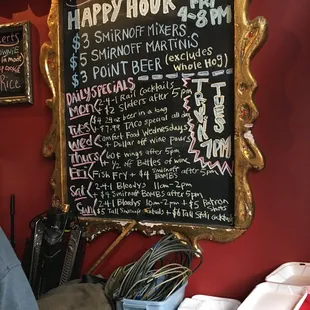 HAPPY HOUR
FRI
4-8 PM
$3 SMIRNOFF MIXERS
$5 SMIRNOFF MARTINIS
$3 POINT BEER (excludes
Whole Hog)
DAILY SPECIALS
MON 2-4-1 Rail Cocktails
$2 Sliders after 5pm
TUES $4 24oz beer in a bag
+ $7.99 TACO special all day
WED Comfort Food Wednesdays
+ Dollar off pours
THURS 60¢ wings after 5pm
+ ½ off Bottles of wine
FRI Fish Fry + $4 Smirnoff BOMBS after 5pm
SAT 2-4-1 Bloodys 10am-2pm
+ $4 Smirnoff BOMBS after 5pm
SUN 2-4-1 Bloodys 10am-2pm + $5 Patron Shots
TUES
7PM
RICE